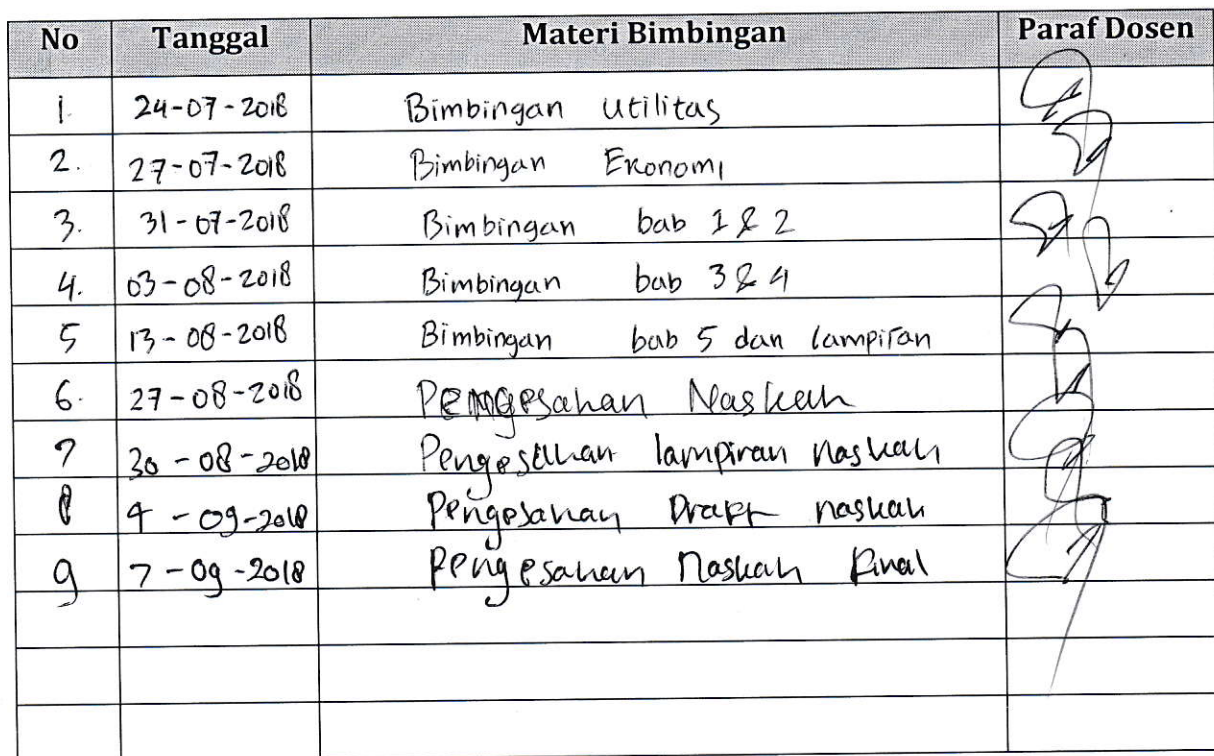 No Tanggal Materi Bimbingan Paraf Dosen
1. 24-07-2018 Bimbingan utilitas
2. 27-07-2018 Bimbingan Ekonomi
3. 31-07-2018 Bimbingan bab 1 & 2
4. 03-08-2018 Bimbingan bab 3 & 4
5 13-08-2018 Bimbingan bab 5 dan lampiran
6. 27-08-2018 Pengesahan Naskah
7 30-08-2018 Pengesahan lampiran naskah
8 4-09-2018 Pengesahan Draft naskah
9 7-09-2018 Pengesahan Naskah Final